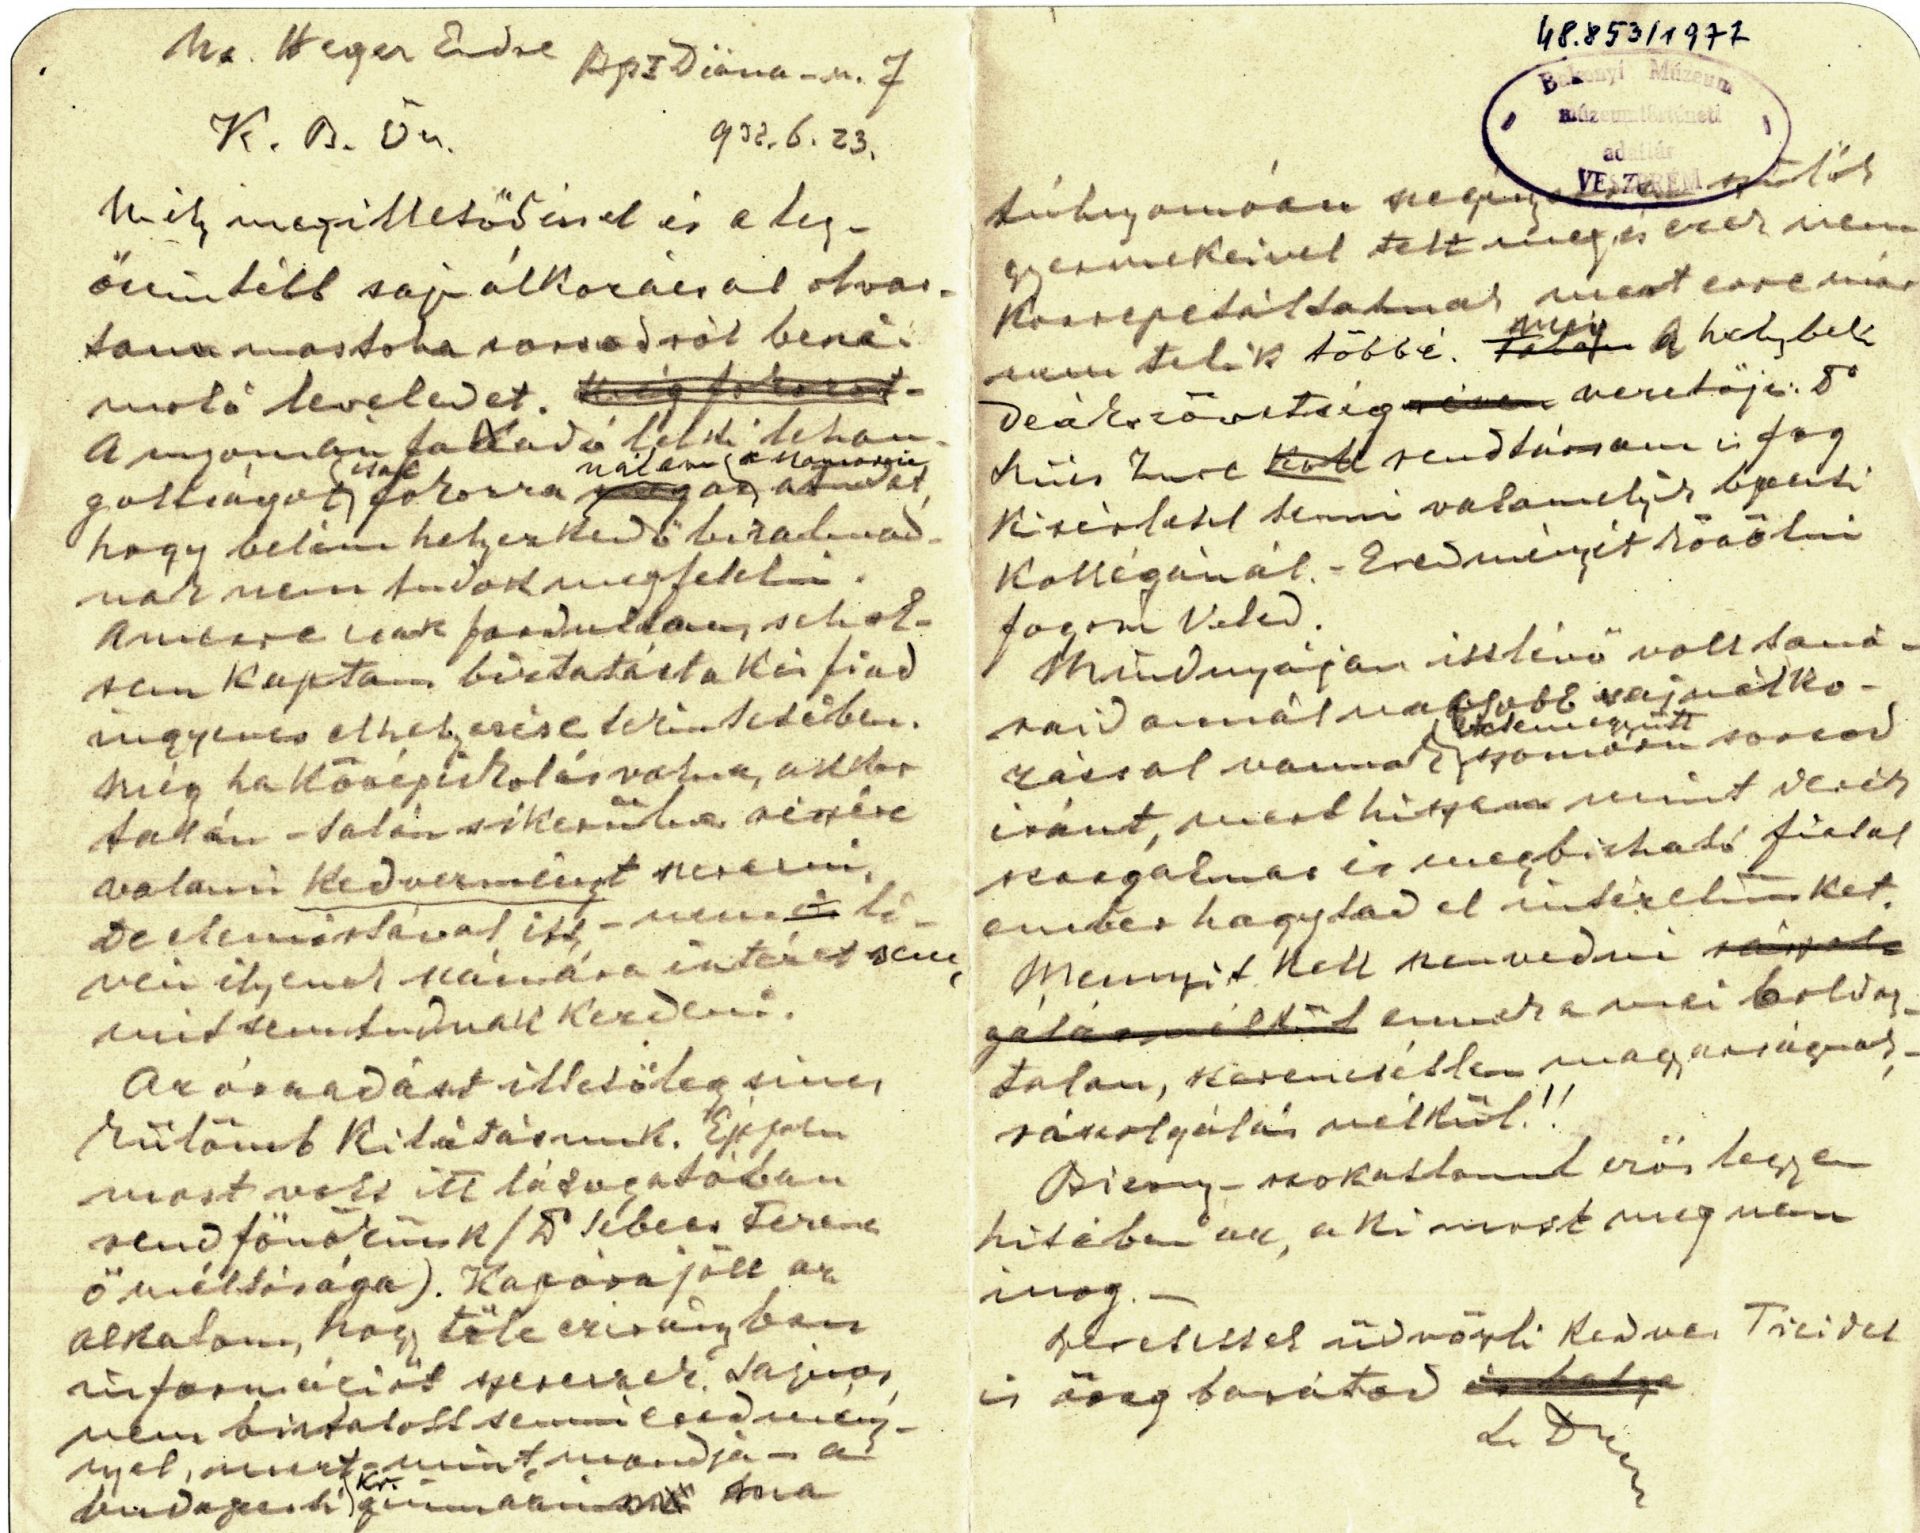 Heger Endre Bp I Diána-u. 7
K. B. Ön. 932.6.23.
Mély megilletődéssel és a leg-
őszintébb sajnálkozással olvas-
tam mostoha sorsodról beszá-
moló leveledet. Még fokozot-
A nyomán fakadó lelki lehan-
goltságot csak fokozza nálam a tudat,
hogy belém helyezkedő bizalmad-
nak nem tudok megfelelni.
Amerre csak fordultam, sehol-
sem kaptam biztatást a kis fiad
ingyenes elhelyezése tekintetében.
Még ha középiskolás volna, akkor
talán-talán sikerülne részére
valami kedvezményt szerezni.
De elemistával itt, - nem lé-
vén ilyenek számára intézet sem,
mit sem tudnak kezdeni.
Az óraadást illetőleg sincs
különb kilátásunk. Éppen
most volt itt látogatóban
rendfőnökünk /Dr Sebes Ferenc
ő méltósága). Kapóra jött az
alkalom, hogy tőle ezirányban
információt szerezzek. Sajnos,
nem biztatott semmi eredmény-
nyel, mert - mint mondja - a
budapesti kr. gimnázium ma
túlnyomóan szegény szülők
gyermekeivel telt meg, és ezek nem
korrepetáltatnak, mert erre már
nem telik többé. A helybeli
deákszövetség vezetője: Dr
Kiss Imre rendtársam is fog
kísérletet tenni valamelyik bpesti
kollégánál. - Eredményét közölni
fogom Veled.
Mindnyájan itt lévő volt taná-
raid annál nagyobb sajnálko-
zással vannak szomorú sorsod
iránt, mert hiszen mint derék
szorgalmas és megbízható fiatal
ember hagytad el intézetünket.
Mennyit kell szenvedni rászol-
gálás nélkül ennek a mai boldog-
talan, szerencsétlen magyarságnak, -
rászolgálás nélkül!!
Bizony - szokatlanul erős legyen
hitében az, aki most meg nem
inog. -
Szeretettel üdvözli kedves Tieidet
is öreg barátod
48.853/1977
Bakonyi Múzeum
múzeumtörténeti
adattár
VESZPRÉM